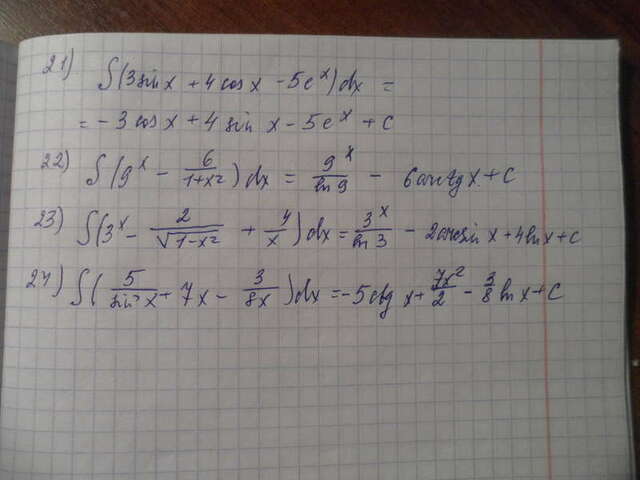 21) ∫(3sin x + 4cos x - 5e^x)dx =
= -3cos x + 4sin x - 5e^x + C
22) ∫(9^x - 6/(1+x²))dx = 9^x/ln 9 - 6arctg x + C
23) ∫(3^x - 2/√(1-x²) + 4/x)dx = 3^x/ln 3 - 2arcsin x + 4ln x + C
24) ∫(5/sin²x + 7x - 3/(8x))dx = -5ctg x + 7x²/2 - 3/8 ln x + C